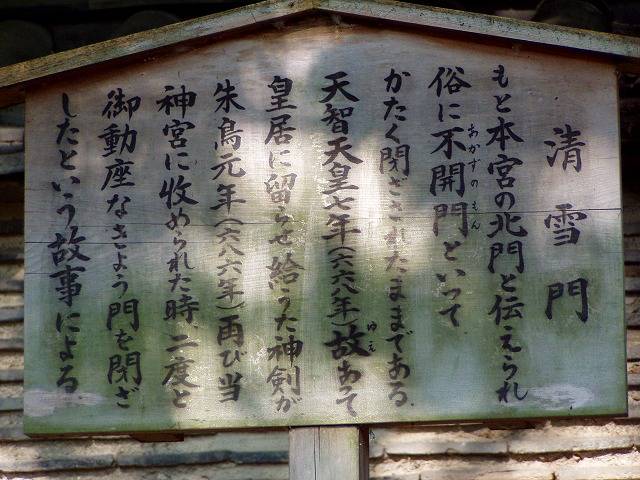 清雪門
もと本宮の北門と伝えられ
俗に不開門といって
あかずのもん
かたく閉ざされたままである
天智天皇七年(六六八年)故あって
ゆえ
皇居に留らせ給うた神剣が
朱鳥元年(六八六年)再び当
神宮に收められた時、二度と
御動座なきよう門を閉ざ
したという故事による